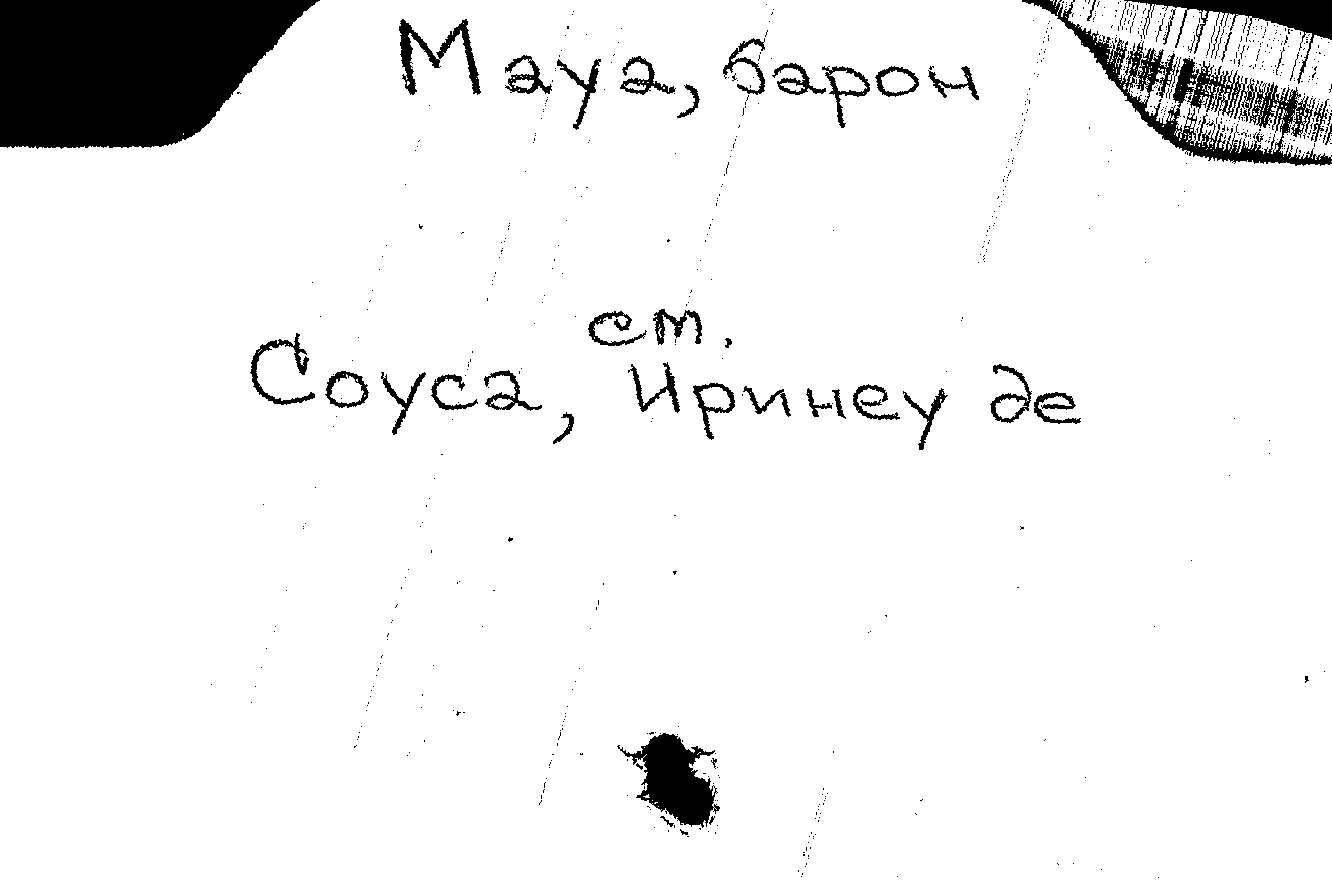 Мауа, барон
ст.
Соуса, Иринеу де